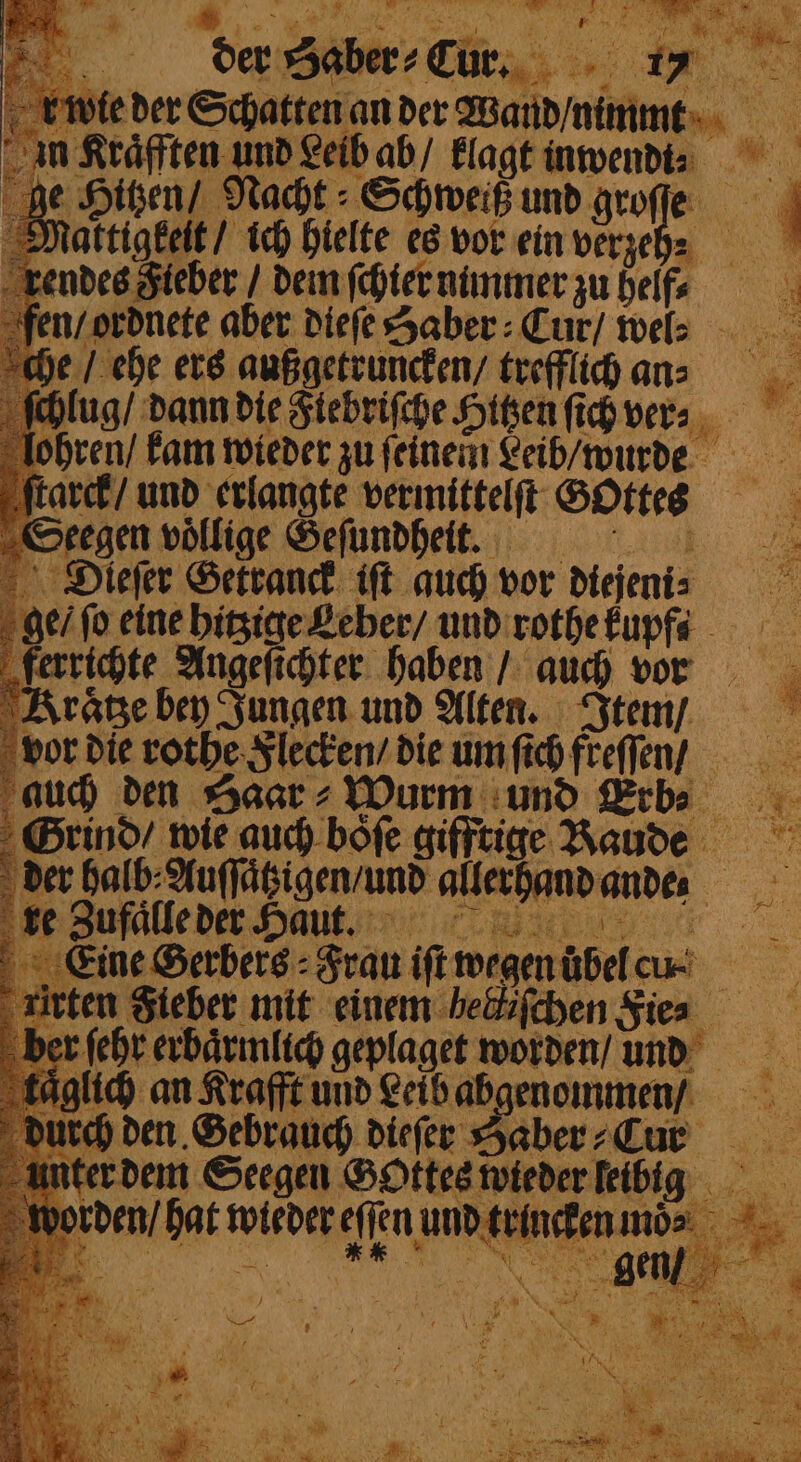 der Haber⸗Cur. 17
r wie der Schatten an der Wand/nimmt
in Kråfften und Leib ab / klagt inwendi⸗
ge Hitzen/ Nacht⸗Schweiß und groſſe
Mattigkeit / ich hielte es vor ein verzeh⸗
rendes Fieber / dem ſchier nimmer zu helf⸗
fen/ ordnete aber dieſe Haber⸗Cur/ wel⸗
che / ehe ers außgetruncken/ trefflich an⸗
ſchlug/ dann die Fiebriſche Hitzen ſich ver⸗
lohren/ kam wieder zu ſeinem Leib/wurde
ſtarck/ und erlangte vermittelſt GOttes
Seegen vo̊llige Geſundheit.
Dieſer Getranck iſt auch vor diejeni⸗
ge/ ſo eine hitzige Leber/ und rothe kupf⸗
ferrichte Angeſichter haben / auch vor
Kråtze bey Jungen und Alten. Item/
vor die rothe Flecken/ die um ſich freſſen/
auch den Haar⸗Wurm und Erb⸗
Grind/ wie auch bo̊ſe gifftige Raude
der halb⸗Auſſåtzigen/und allerhand ande⸗
re Zufålle der Haut.
Eine Gerbers⸗Frau iſt wegen ůbel cu-
rirten Fieber mit einem hectiſchen Fie⸗
ber ſehr erbårmlich geplaget worden/ und
tåglich an Krafft und Leib abgenommen/
durch den Gebrauch dieſer Haber⸗Cur
unter dem Seegen GOttes wieder leibig
worden/ hat wieder eſſen und trincken mo̊⸗
** gen/